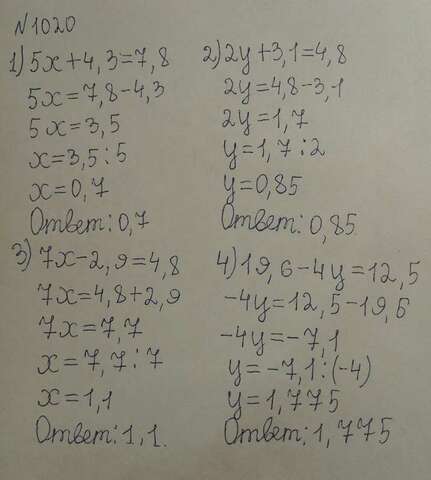 N1020
1) 5x+4,3=7,8
5x=7,8-4,3
5x=3,5
x=3,5:5
x=0,7
Ответ: 0,7
2) 2y+3,1=4,8
2y=4,8-3,1
2y=1,7
y=1,7:2
y=0,85
Ответ: 0,85
3) 7x-2,9=4,8
7x=4,8+2,9
7x=7,7
x=7,7:7
x=1,1
Ответ: 1,1.
4) 19,6-4y=12,5
-4y=12,5-19,6
-4y=-7,1
y=-7,1:(-4)
y=1,775
Ответ: 1,775